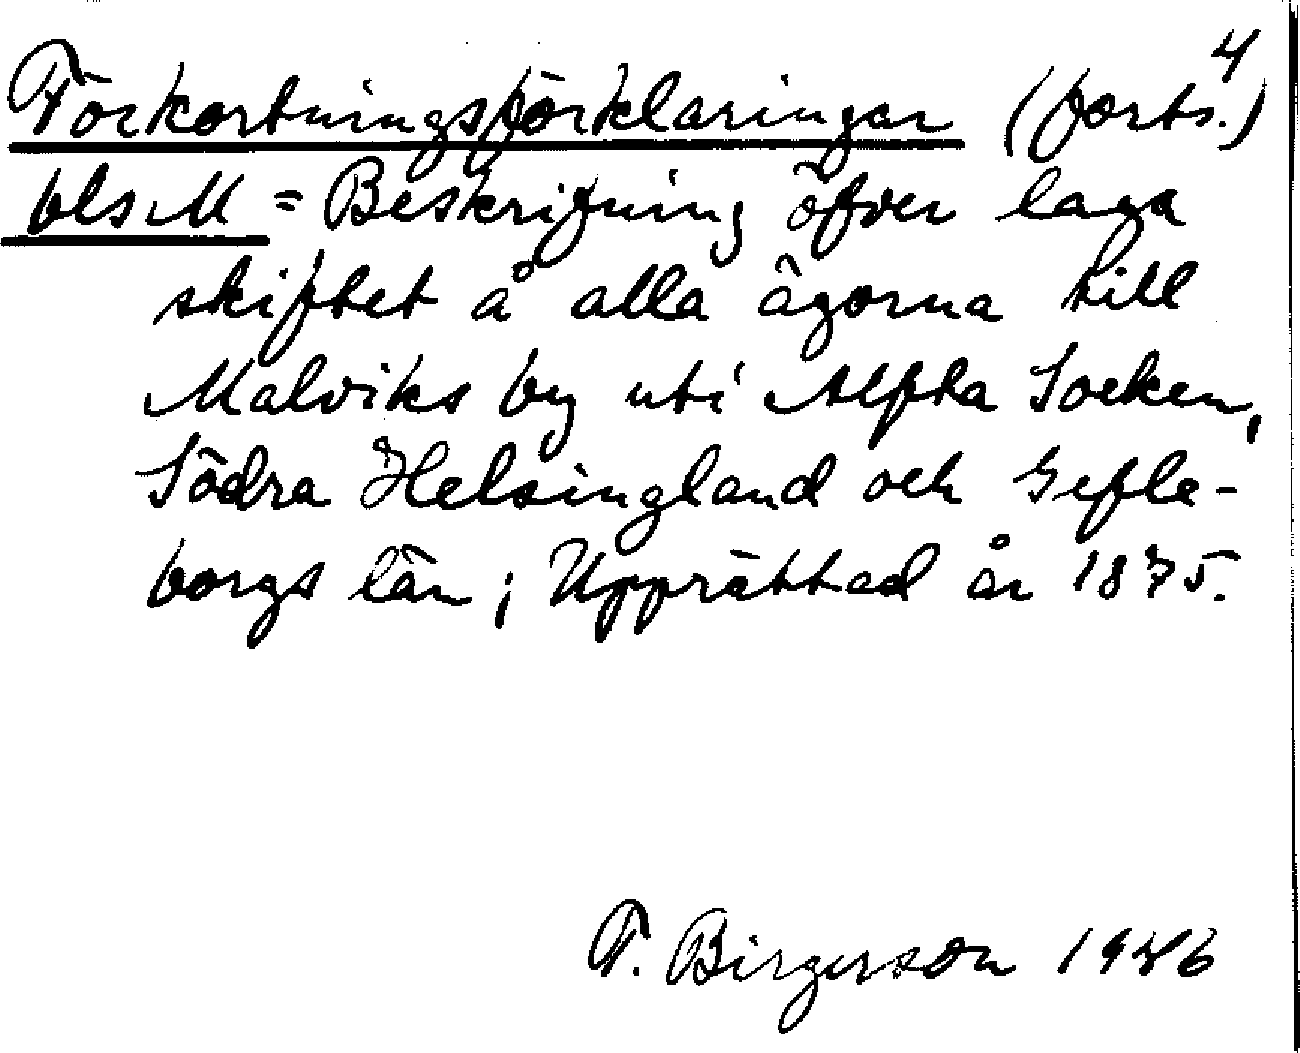 4
Förkortningsförklaringar (forts.)
bls M = Beskrifning öfver laga
skiftet å alla ägorna till
Malviks by uti Alfta Socken,
Södra Helsingland och Gefle-
borgs län; Upprättad år 1875.
F. Birgerson 1946